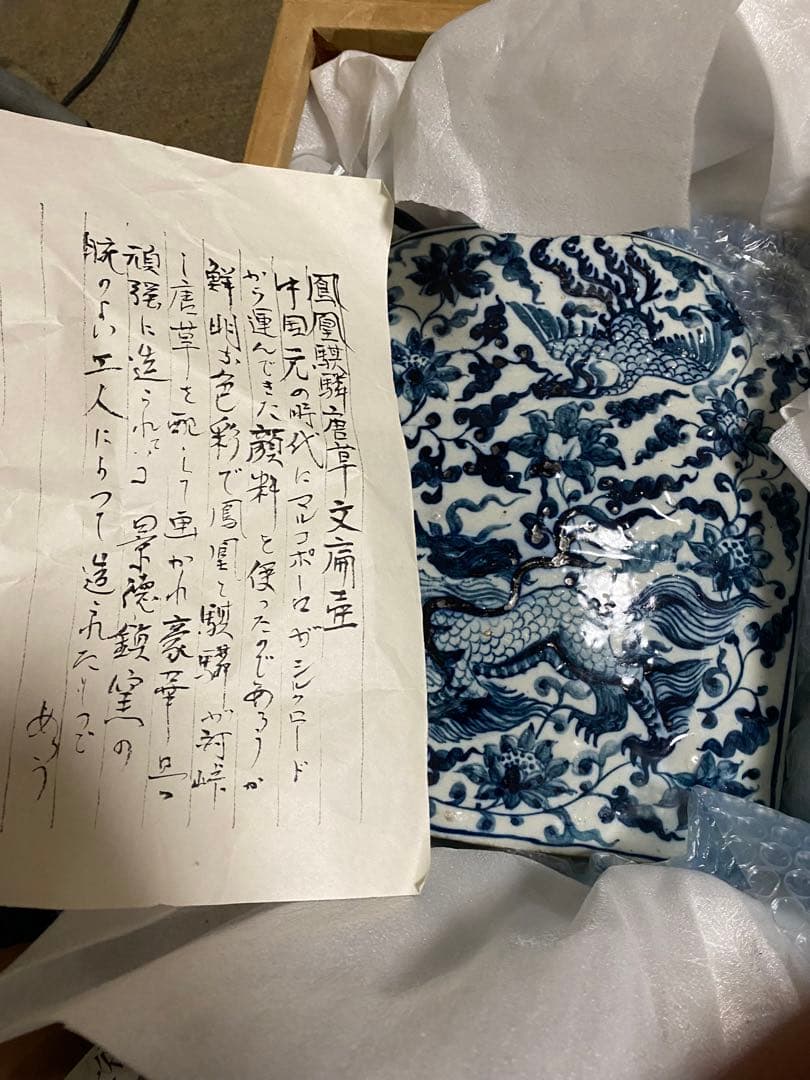 鳳凰騏驎唐草文扁壺
中国元の時代にマルコポーロがシルクロード
から運んできた顔料を使ったのであろうか
鮮明な色彩で鳳凰と騏驎が対峙
し唐草を配して画かれ豪華
頑強に造られている景徳鎮窯の
腕のよい工人によって造られたもので
あろう